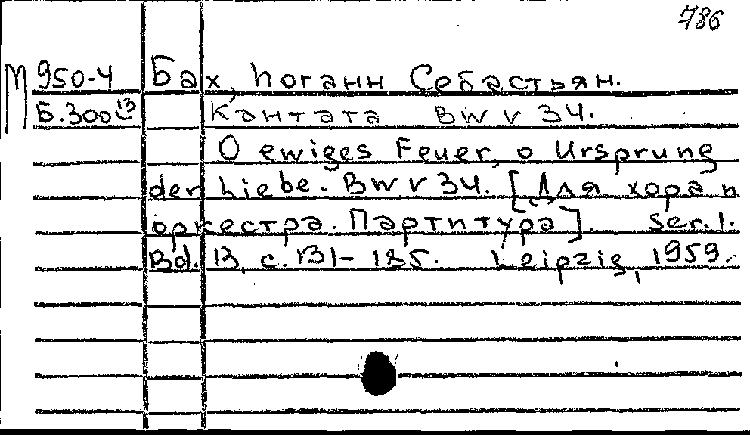 786
М 950-4 Бах, Иоганн Себастьян.
Б.300 13 Кантата BWV 34.
O ewiges Feuer, o Ursprung
der Liebe. BWV 34. [Для хора и
оркестра. Партитура]. Ser. 1.
Bd. 13, с. 131-185. Leipzig, 1959.